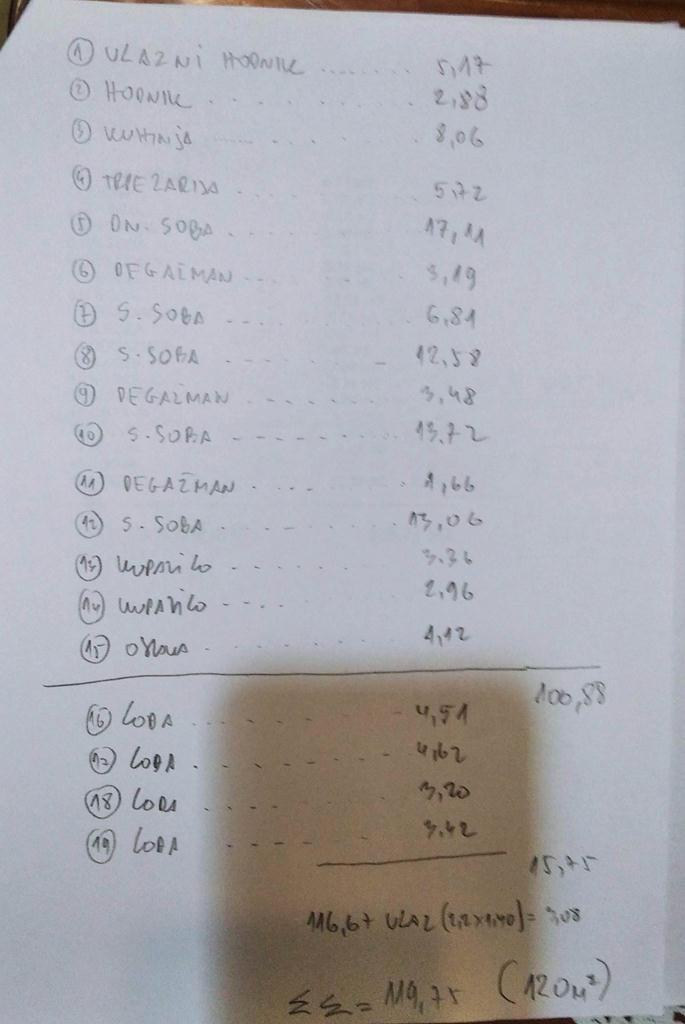 ① ULAZNI HODNIK ........ 5,17
② HODNIK .......... 2,88
③ KUHINJA .......... 8,06
④ TRPEZARIJA .......... 5,72
⑤ DN. SOBA .......... 17,11
⑥ DEGAŽMAN .......... 3,19
⑦ S. SOBA .......... 6,81
⑧ S. SOBA .......... 12,58
⑨ DEGAŽMAN .......... 3,48
⑩ S. SOBA .......... 13,72
⑪ DEGAŽMAN .......... 1,66
⑫ S. SOBA .......... 13,06
⑬ KUPATILO .......... 3.36
⑭ KUPATILO .... 2,96
⑮ OSTAVA .......... 1,12
100,88
⑯ LOĐA .......... 4,51
⑰ LOĐA .......... 4,62
⑱ LOĐA .......... 3,20
⑲ LOĐA .......... 3,42
15,75
116,6+ ULAZ (2,2x1,40)= 3,08
ΣΣ= 119,75 (120M²)